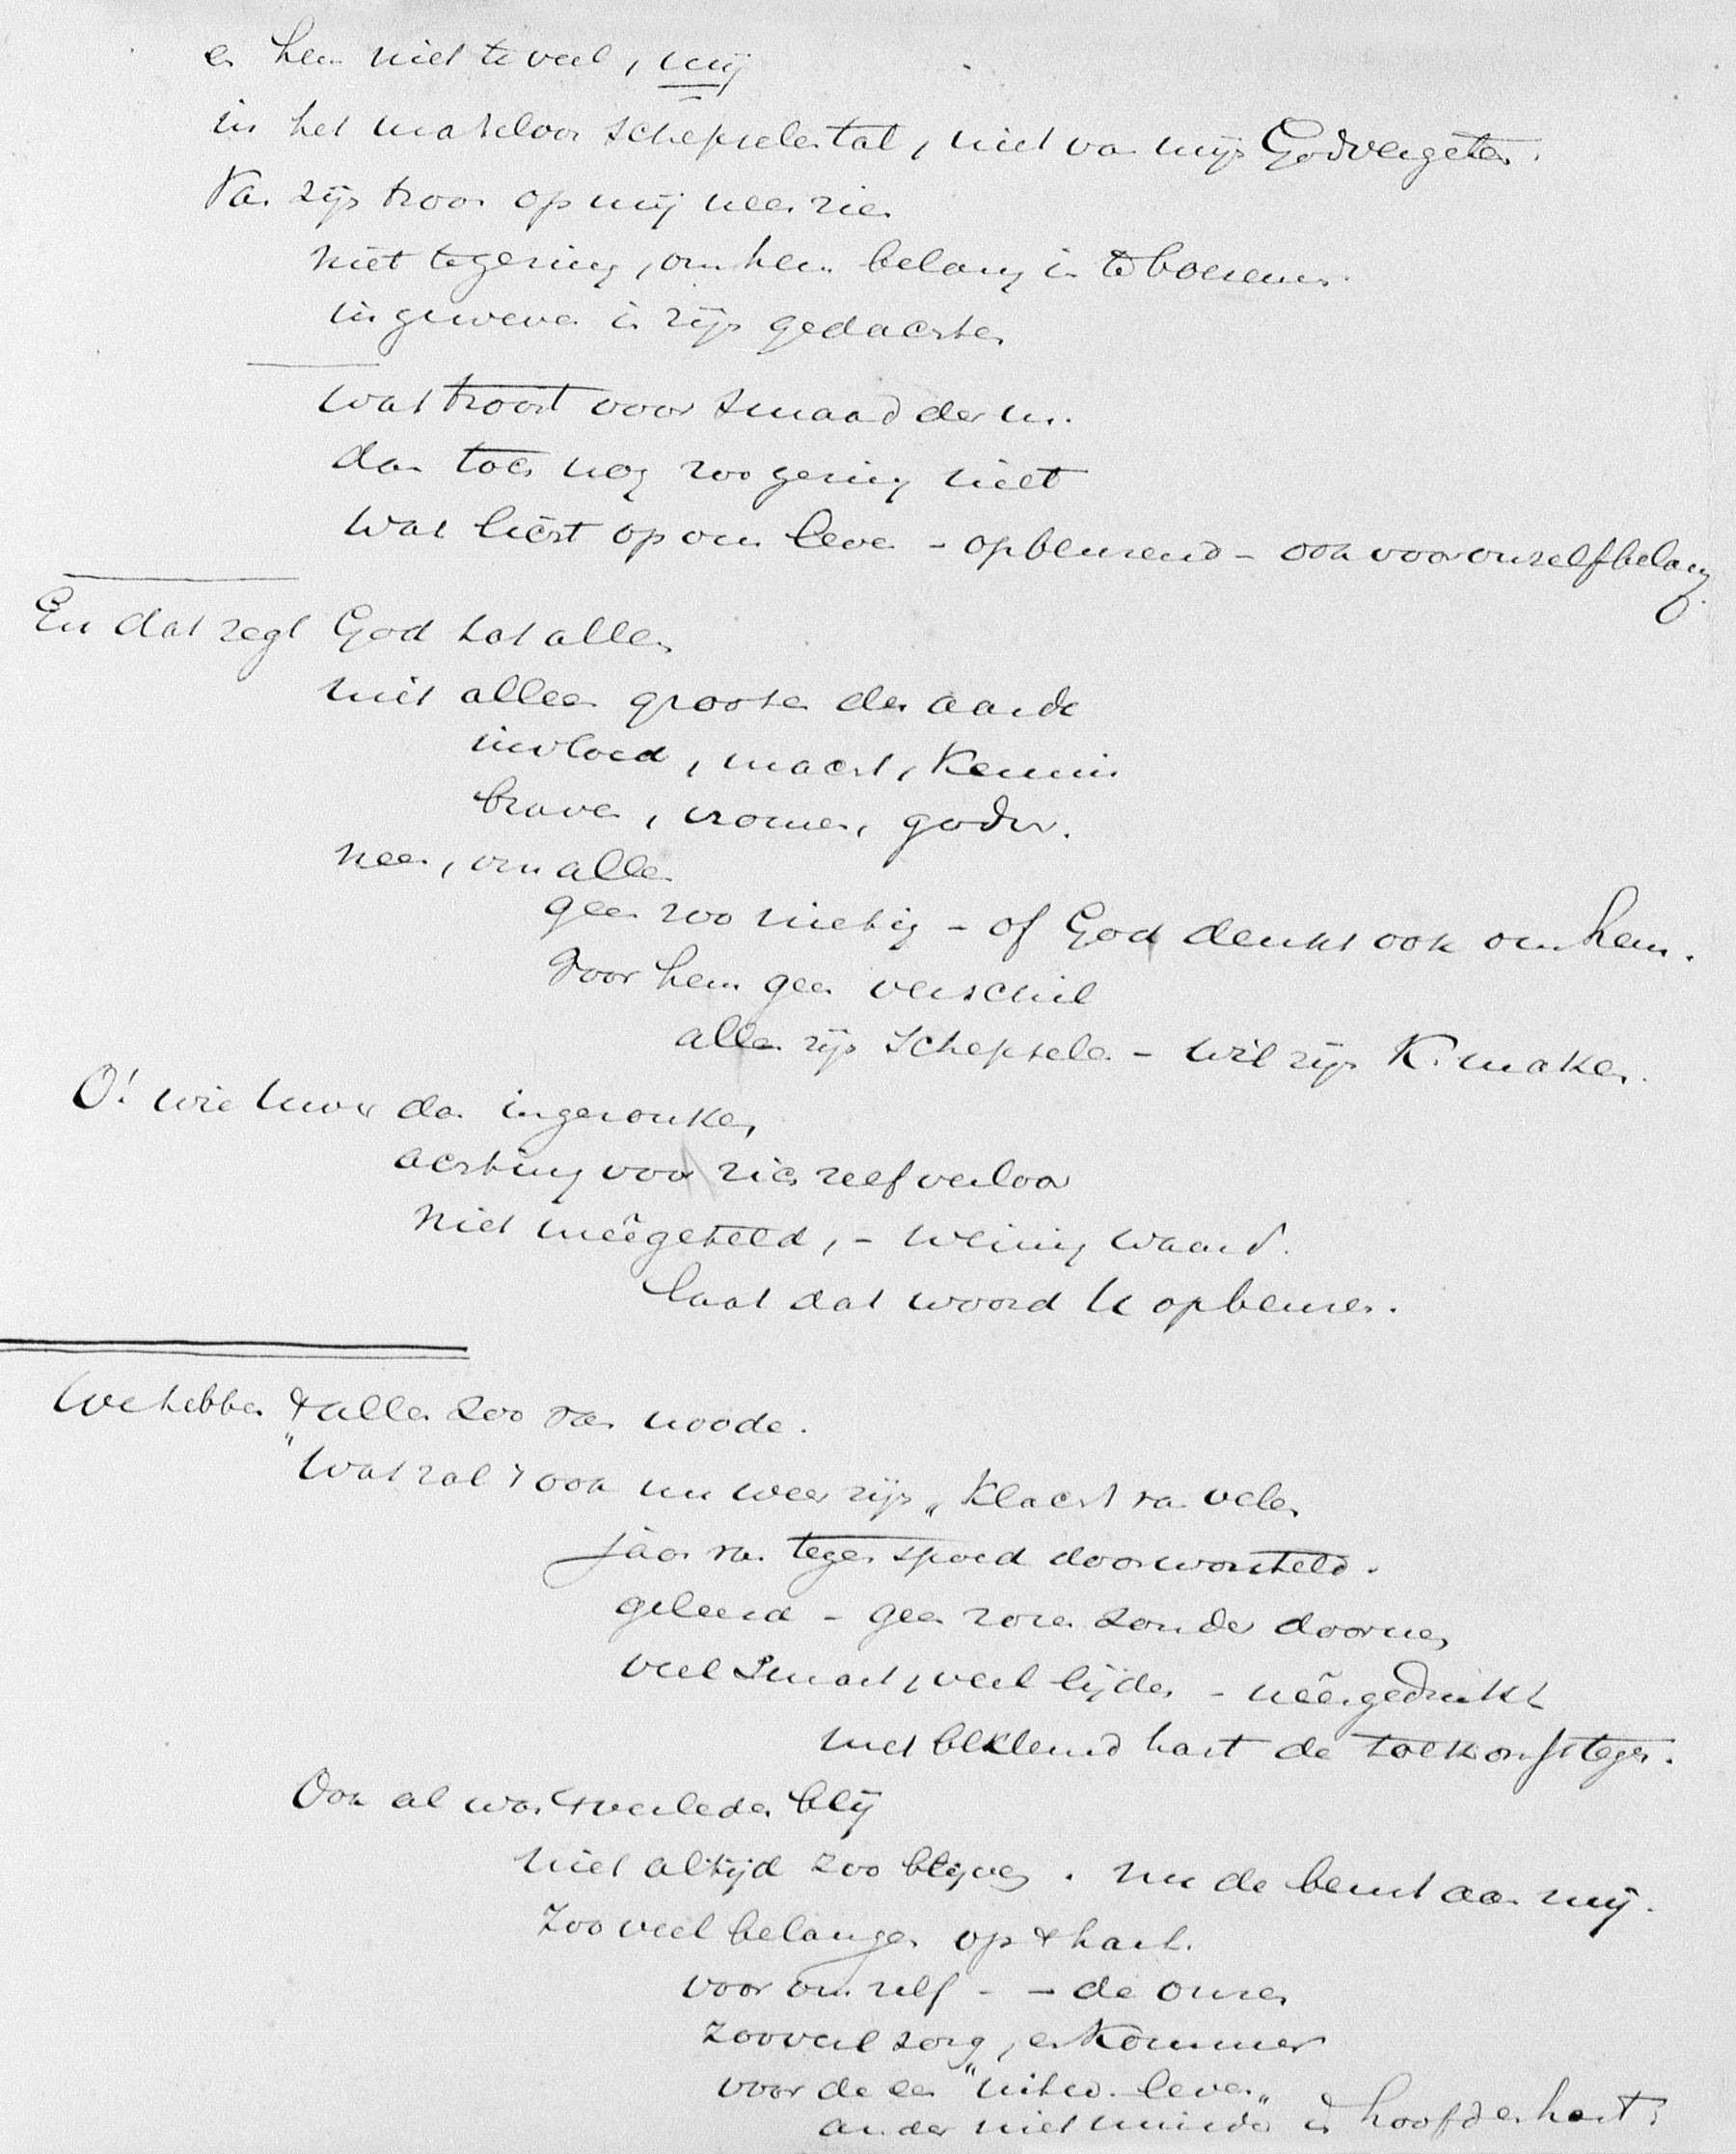 en hem niet te veel, mij
in het mateloos schepselental, niet van mijn God vergeten.
Van zijn troon op mij neerzien
niet te gering, om hem belang in te boezemen.
ingeweven in zijn gedachten
Wat troost voor smaad der m.
dan toch nog zoo gering niet
Wat licht op ons leven - opbeurend - ook voor onszelf belang.
En dat zegt God tot allen
niet alleen grooten der aarde
invloed, macht, kennis
braven, vromen, godv.
neen, om allen
geen zoo nietig - of God denkt ook om hem.
Voor hem geen verschil
allen zijn schepselen - wil zijn K. maken.
O! wie Uwer dan ingezonken,
achting voor zich zelf verloor
Niet meêgeteld, - weinig waard.
laat dat woord U opbeuren.
We hebben 't allen zoo van noode.
"Wat zal 't ook nu weer zijn" klacht van velen
jaar van tegenspoed doorworsteld.
geleerd - geen rozen zonder doornen
veel smart, veel lijden - neêrgedrukt
met beklemd hart de toekomst tegen.
Ook al was 't verleden blij
niet altijd zoo blijven. Nu de beurt aan mij.
Zooveel belangen op 't hart.
voor ons zelf - - de onzen
zooveel zorg, en kommer
voor de een "uitw. leven"
ander niet minder in hoofd en hart.